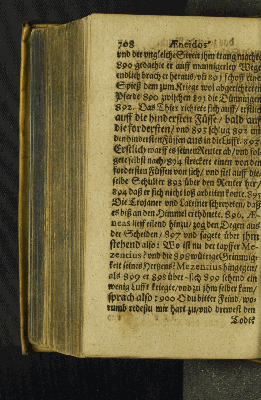 708 Æneidos
und der vngleiche Streit jhm trang machte/
890 gedachte er auff mancherley Wege
endlich brach er heraus/ vñ 891 schoß einen
Spieß dem zum Kriege wol abgerichteten
Pferde 890 zwischen 891 die Dünningen
892. Das Thier richtete sich auff/ erstlich
auff die hindersten Füsse/ bald auff
die fordersten/ vnd 893 schlug 892 mit
den hindersten Füssen aus in die Lufft. 892
Erstlich warff es seinen Reuter ab/ vnd folgete
selbst nach/ 894 streckete einen von den
fordersten Füssen von sich/ vnd fiel auff dieselbe
Schulter 893 über den Reuter her/
894 daß er sich nicht loß arbeiten konte. 895
Die Trojaner vnd Lateiner schreyeten/ daß
es biß an den Himmel erthönete. 896. Æneas
lieff eilend hinzu/ zog den Degen aus
der Scheiden/ 897 vnd sagete über ihm
stehend also: Wo ist nu der tapffer Mezencius/
und die 898 wütrige Grimmigkeit
seines Hertzens? Mezencius hingegen/
als 899 er 898 über sich 899 sehend ein
wenig Lufft kriegte/ vnd zu jhm selber kam/
sprach also: 900 O du bitter Feind/ worumb
redestu mir hart zu/ vnd drewest den
Todt?